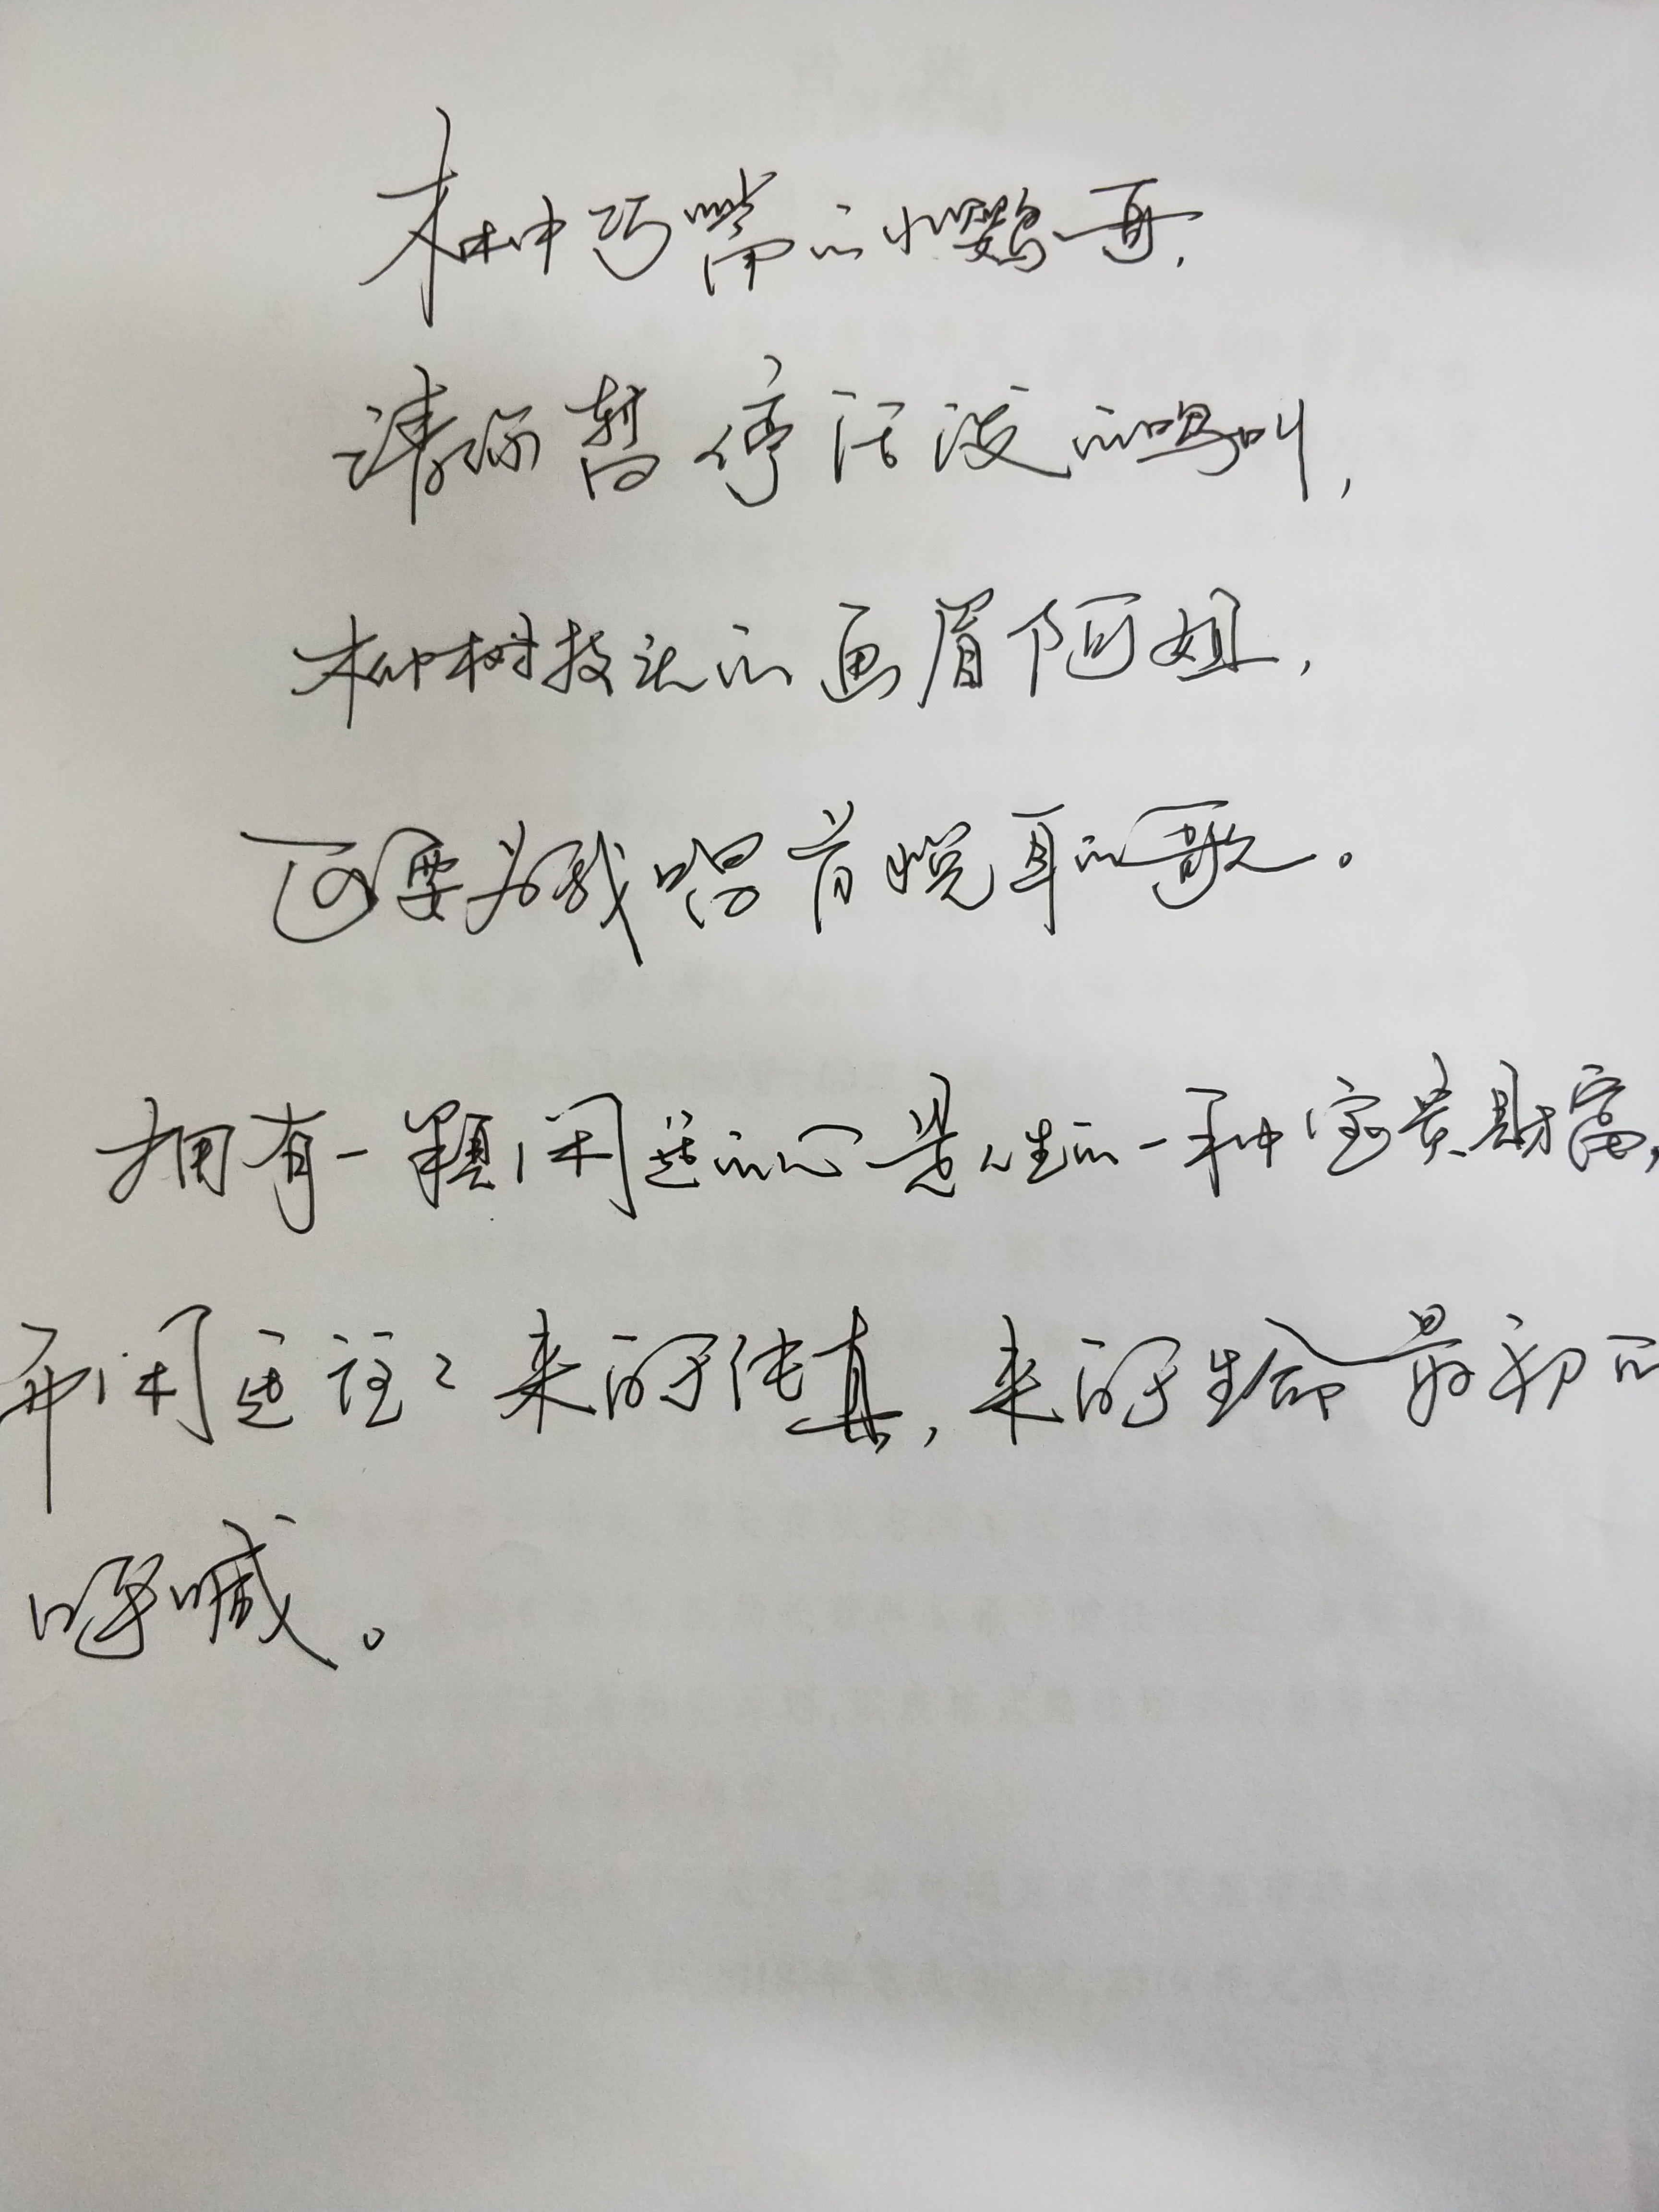 林中巧嘴的小鹦哥,
请你暂停活泼的鸣叫,
柳树枝头的画眉阿姐,
可要为我唱首悦耳的歌。
拥有一颗闲适的心是人生的一种宝贵财富,
而闲适往往来的纯真,来的生命最初的
呼喊。